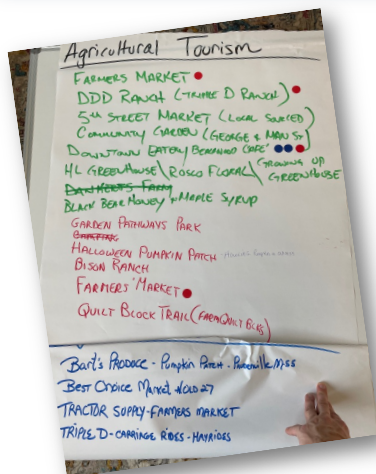 Agricultural Tourism
FARMERS MARKET
DDD RANCH (TRIPLE D RANCH)
5th STREET MARKET (LOCAL SOURCED)
COMMUNITY GARDEN (GEORGE & MAIN ST)
DOWNTOWN EATERY/ CAFE'
HL GREENHOUSE\ ROSCO FLORAL\ (GROWING UP GREENHOUSE
DAN KEETS FARM
BLACK BEAR HONEY & MAPLE SYRUP
GARDEN PATHWAYS PARK
HALLOWEEN PUMPKIN PATCH
BISON RANCH
FARMERS' MARKET
QUILT BLOCK TRAIL (FARM QUILT BLKS)
Bart's PRODUCE - Pumpkin Patch -
Best Choice Market
TRACTOR SUPPLY - FARMERS MARKET
TRIPLE D - CARRIAGE RIDES - HAYRIDES